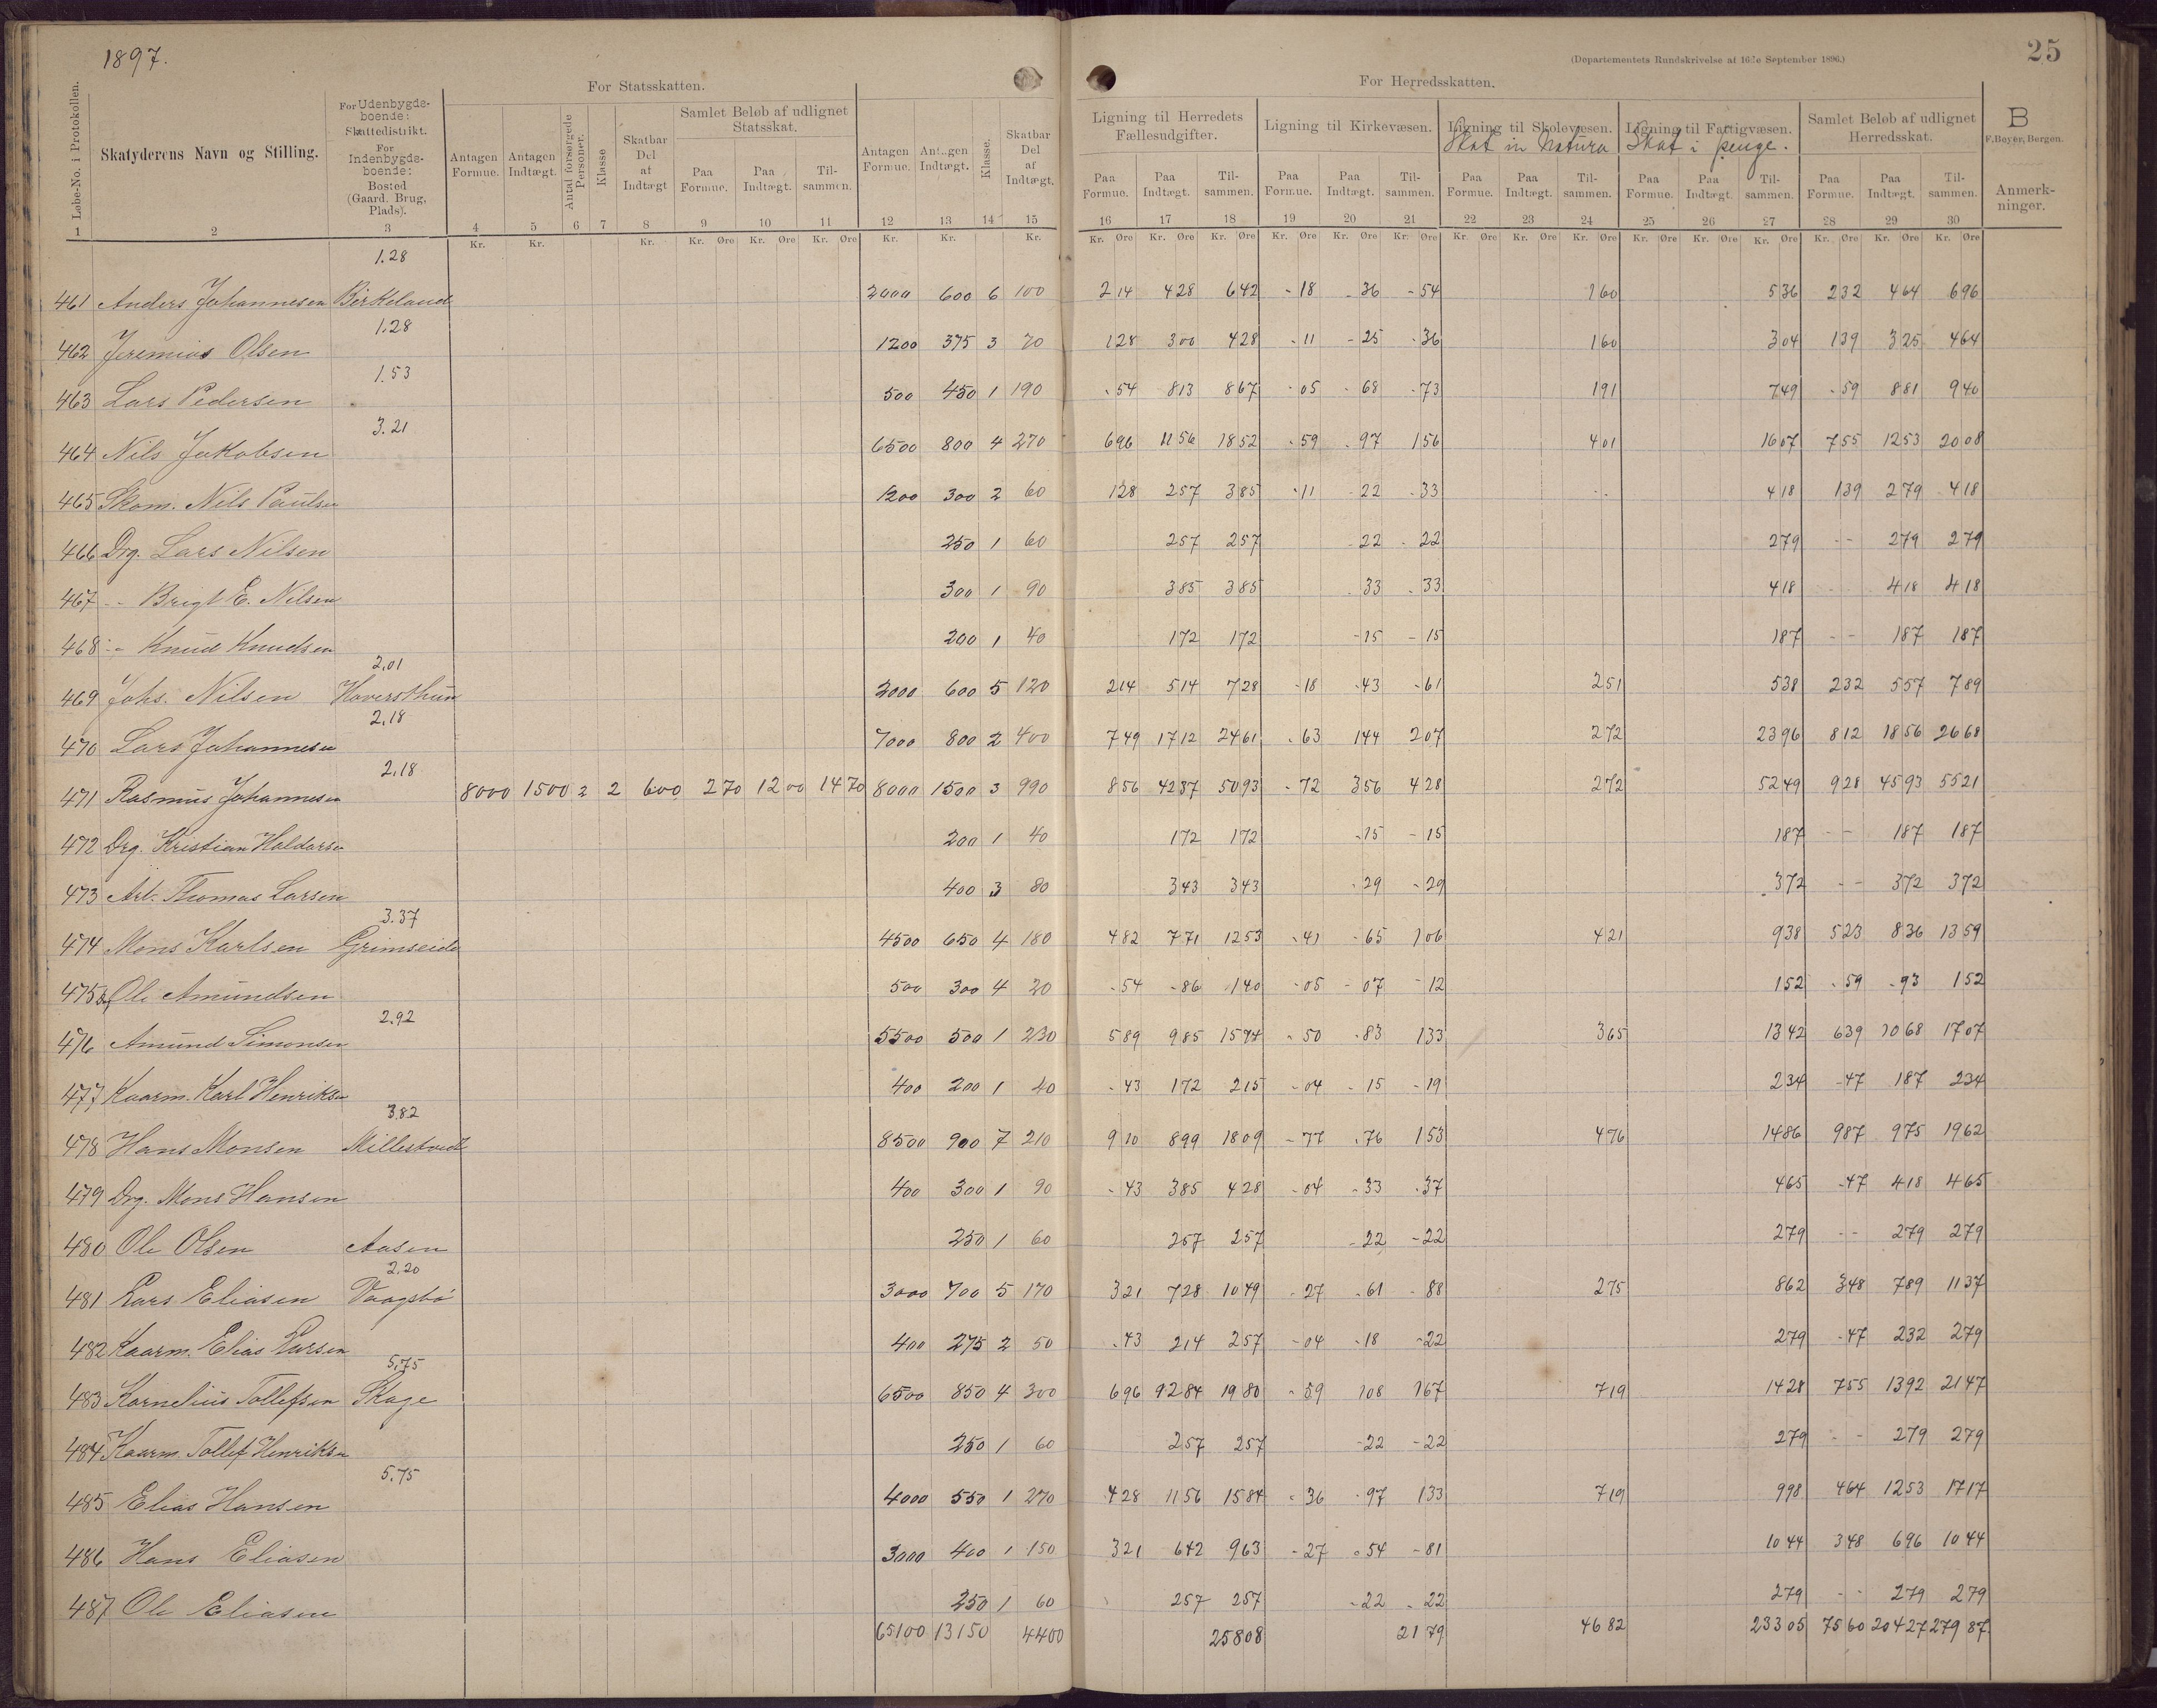 1897.
25
(Departementets Rundskrivelse af 16de September 1896.)
For Statsskatten.
For Herredsskatten.
Løbe-No. i Protokollen.
Skatyderens Navn og Stilling.
For Udenbygdsboende: Skattedistrikt. For Indenbygdsboende: Bosted (Gaard, Brug, Plads).
Antagen Formue. Antagen Indtægt. Antal forsørgede Personer. Klasse Skatbar Del af Indtægt
Samlet Beløb af udlignet Statsskat.
Paa Formue. Paa Indtægt. Tilsammen.
Antagen Formue. Antagen Indtægt. Klasse. Skatbar Del af Indtægt.
Ligning til Herredets Fællesudgifter. Ligning til Kirkevæsen. Ligning til Skolevæsen. Ligning til Fattigvæsen. Samlet Beløb af udlignet Herredsskat.
Skat in Natura Skat i penge.
B
F. Beyer, Bergen.
Paa Formue. Paa Indtægt. Tilsammen. Paa Formue. Paa Indtægt. Tilsammen. Paa Formue. Paa Indtægt. Tilsammen. Paa Formue. Paa Indtægt. Tilsammen. Paa Formue. Paa Indtægt. Tilsammen.
Anmerkninger.
1 2 3 4 5 6 7 8 9 10 11 12 13 14 15 16 17 18 19 20 21 22 23 24 25 26 27 28 29 30
Kr. Kr. Kr. Kr. Øre Kr. Øre Kr. Øre Kr. Kr. Kr. Kr. Øre Kr. Øre Kr. Øre Kr. Øre Kr. Øre Kr. Øre Kr. Øre Kr. Øre Kr. Øre Kr. Øre Kr. Øre Kr. Øre Kr. Øre Kr. Øre Kr. Øre
1.28
461 Anders Johannesen Birkeland 2000 600 6 100 214 428 642 -18 -36 -54 160 536 232 464 696
1.28
462 Jeremias Olsen 1200 375 3 70 128 300 428 -11 -25 -36 160 304 139 325 464
1.53
463 Lars Pedersen 500 450 1 190 -54 813 867 -05 -68 -73 191 749 -59 881 940
3.21
464 Nils Jakobsen 6500 800 4 270 696 1156 1852 -59 -97 156 401 1607 755 1253 2008
465 Skom. Nils Paulsen 1200 300 2 60 128 257 385 -11 -22 -33 -- 418 139 279 418
466 Drg. Lars Nilsen 250 1 60 257 257 -22 -22 279 -- 279 279
467 -- Brigt E. Nilsen 300 1 90 385 385 -33 -33 418 -- 418 418
468 -- Knud Knudsen 200 1 40 172 172 -15 -15 187 -- 187 187
2.01
469 Johs. Nilsen Hoversthun 2000 600 5 120 214 514 728 -18 -43 -61 251 538 232 557 789
2.18
470 Lars Johannesen 7000 800 2 400 749 1712 2461 -63 144 207 272 2396 812 1856 2668
2.18
471 Rasmus Johannesen 8000 1500 2 2 600 270 1200 1470 8000 1500 3 990 856 4237 5093 -72 356 428 272 5249 928 4593 5521
472 Drg. Kristian Haldorsen 200 1 40 172 172 -15 -15 187 -- 187 187
473 Arb. Thomas Larsen 400 3 80 343 343 -29 -29 372 -- 372 372
3.37
474 Mons Karlsen Grimseide 4500 650 4 180 482 771 1253 -41 -65 106 421 938 523 836 1359
475 Ole Amundsen 500 300 4 20 -54 -86 140 -05 -07 -12 152 -59 -93 152
2.92
476 Amund Simonsen 5500 500 1 230 589 985 1574 -50 -83 133 365 1342 639 1068 1707
477 Kaarm. Karl Henriksen 400 200 1 40 -43 172 215 -04 -15 -19 234 -47 187 234
3.82
478 Hans Monsen Millestvedt 8500 900 7 210 910 899 1809 -77 -76 153 476 1486 987 975 1962
479 Drg. Mons Hansen 400 300 1 90 -43 385 428 -04 -33 -37 465 -47 418 465
480 Ole Olsen Aasen 250 1 60 257 257 -22 -22 279 -- 279 279
2.20
481 Lars Eliasen Vaagsbö 3000 700 5 170 321 728 1049 -27 -61 -88 275 862 348 789 1137
482 Kaarm. Elias Larsen 400 275 2 50 -43 214 257 -04 -18 -22 279 -47 232 279
5.75
483 Kornelius Tollefsen Skage 6500 850 4 300 696 1284 1980 -59 108 167 719 1428 755 1392 2147
484 Kaarm. Tollef Henriksen 250 1 60 257 257 -22 -22 279 -- 279 279
5.75
485 Elias Hansen 4000 550 1 270 428 1156 1584 -36 -97 133 719 998 464 1253 1717
486 Hans Eliasen 3000 400 1 150 321 642 963 -27 -54 -81 1044 348 696 1044
487 Ole Eliasen 250 1 60 257 257 -22 -22 279 -- 279 279
65100 13150 4400 25808 2179 4682 23305 7560 20427 27987